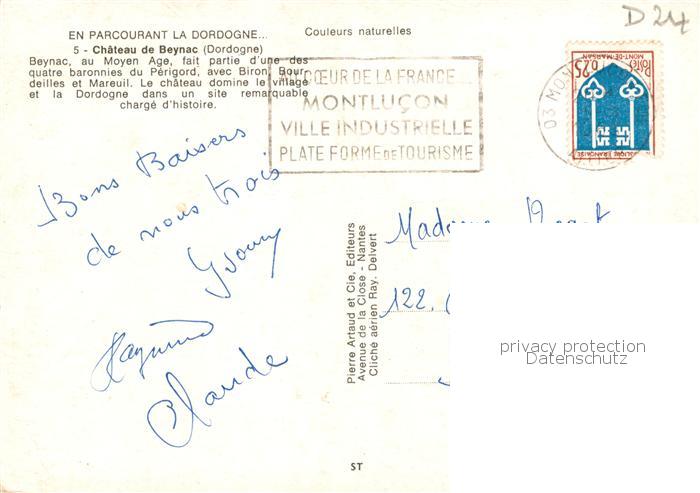 D 24
EN PARCOURANT LA DORDOGNE...
Couleurs naturelles
5 - Château de Beynac (Dordogne)
Beynac, au Moyen Age, fait partie d'une des
quatre baronnies du Périgord, avec Biron, Bour-
deilles et Mareuil. Le château domine le village
et la Dordogne dans un site remarquable
chargé d'histoire.
AU CŒUR DE LA FRANCE
MONTLUÇON
VILLE INDUSTRIELLE
PLATE FORME DE TOURISME
03 MON
Postes
0,25
MONT-DE-MARSAN
Bons Baisers
de nous trois
Yvonne
Raymond
Claude
Pierre Artaud et Cie, Editeurs
Avenue de la Close - Nantes
Cliché aérien Ray. Delvert
Madame
122.
privacy protection
Datenschutz
ST